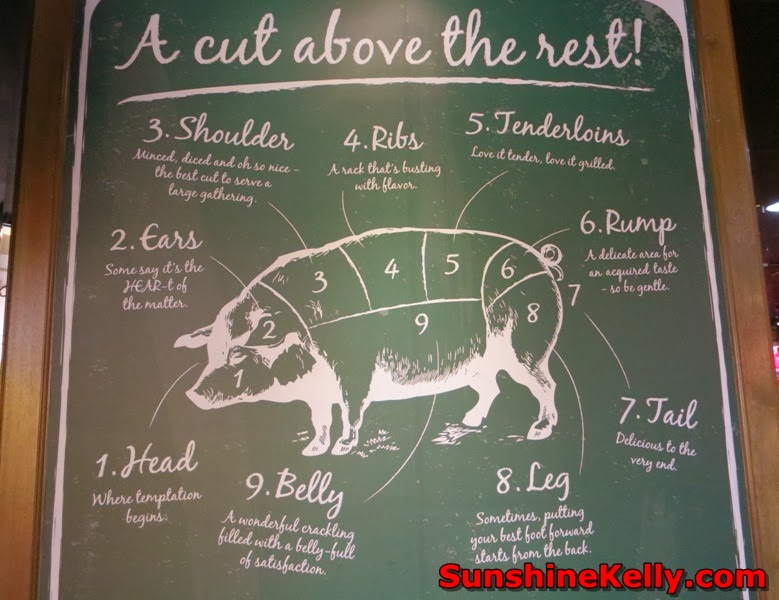 A cut above the rest!
3. Shoulder
Minced, diced and oh so nice -
the best cut to serve a
large gathering.
4. Ribs
A rack that's busting
with flavor.
5. Tenderloins
Love it tender, love it grilled.
2. Ears
Some say it's the
HEAR-t of
the matter.
6. Rump
A delicate area for
an acquired taste
- so be gentle.
3
4
5
6
7
2
9
8
1
7. Tail
Delicious to the
very end.
1. Head
Where temptation
begins.
9. Belly
A wonderful crackling
filled with a belly-full
of satisfaction.
8. Leg
Sometimes, putting
your best foot forward
starts from the back.
SunshineKelly.com